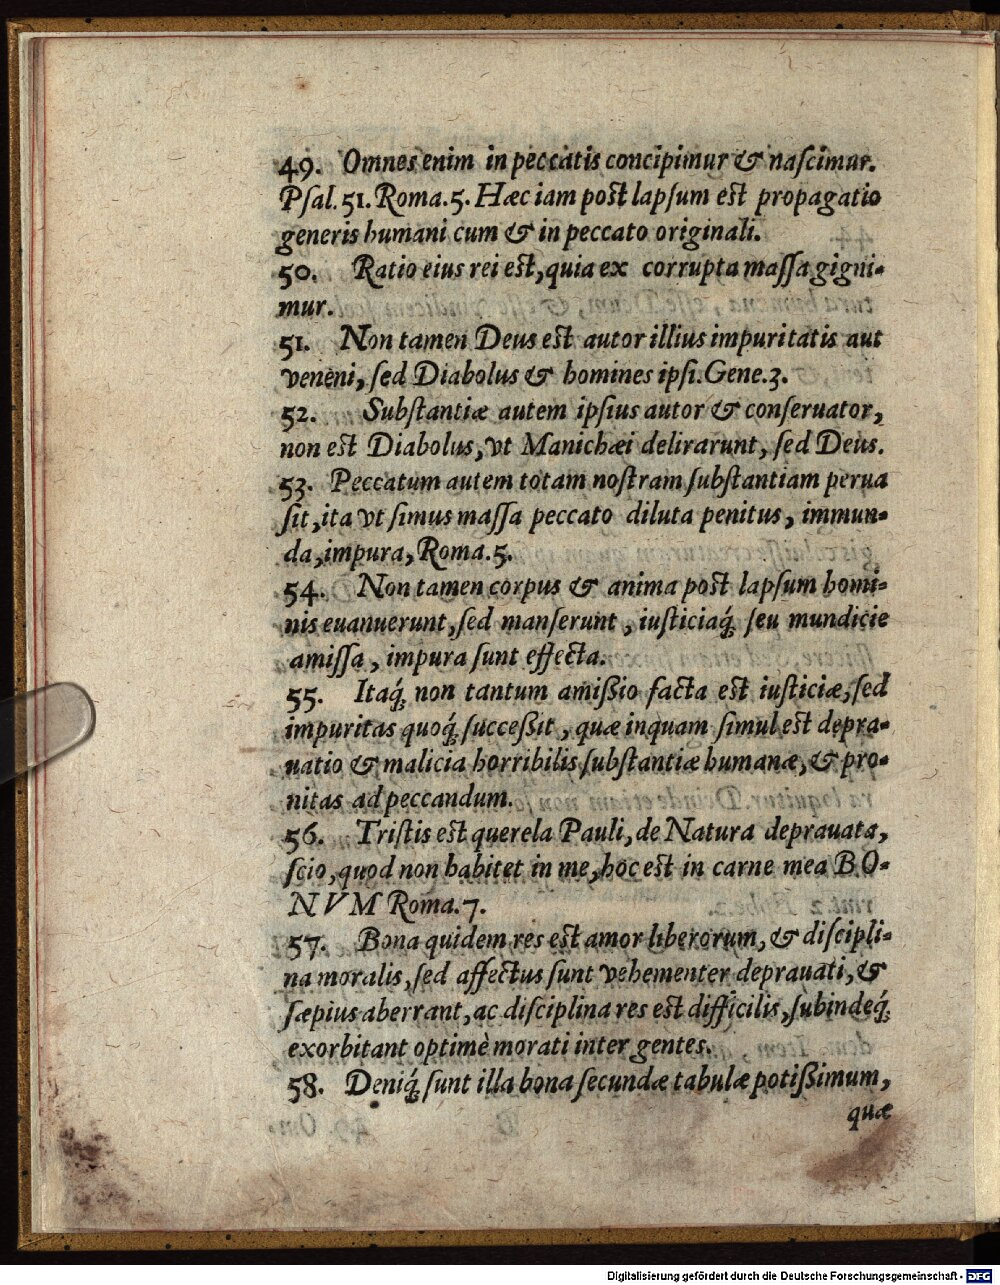 49. Omnes enim in peccatis concipimur & naſcimur.
Pſal. 51. Roma. 5. Hæc iam poſt lapſum eſt propagatio
generis humani cum & in peccato originali.
50. Ratio eius rei eſt, quia ex corrupta maſſa gigni-
mur.
51. Non tamen Deus eſt autor illius impuritatis aut
veneni, ſed Diabolus & homines ipſi. Gene. 3.
52. Subſtantiæ autem ipſius autor & conſeruator,
non eſt Diabolus, vt Manichæi delirarunt, ſed Deus.
53. Peccatum autem totam noſtram ſubſtantiam perua
ſit, ita vt ſimus maſſa peccato diluta penitus, immun-
da, impura, Roma. 5.
54. Non tamen corpus & anima poſt lapſum homi-
nis euanuerunt, ſed manſerunt, iuſticiaq́; ſeu mundicie
amiſſa, impura ſunt effecta.
55. Itaq́; non tantum amiſsio facta eſt iuſticiæ, ſed
impuritas quoq́; ſucceſsit, quæ inquam ſimul eſt depra-
uatio & malicia horribilis ſubſtantiæ humanæ, & pro-
nitas ad peccandum.
56. Triſtis eſt querela Pauli, de Natura deprauata,
ſcio, quod non habitet in me, hoc eſt in carne mea BO-
NVM Roma. 7.
57. Bona quidem res eſt amor liberorum, & diſcipli-
na moralis, ſed affectus ſunt vehementer deprauati, &
ſæpius aberrant, ac diſciplina res eſt difficilis, ſubindeq́;
exorbitant optimè morati inter gentes.
58. Deniq́; ſunt illa bona ſecundæ tabulæ potiſsimum,
quæ
Digitalisierung gefördert durch die Deutsche Forschungsgemeinschaft - DFG